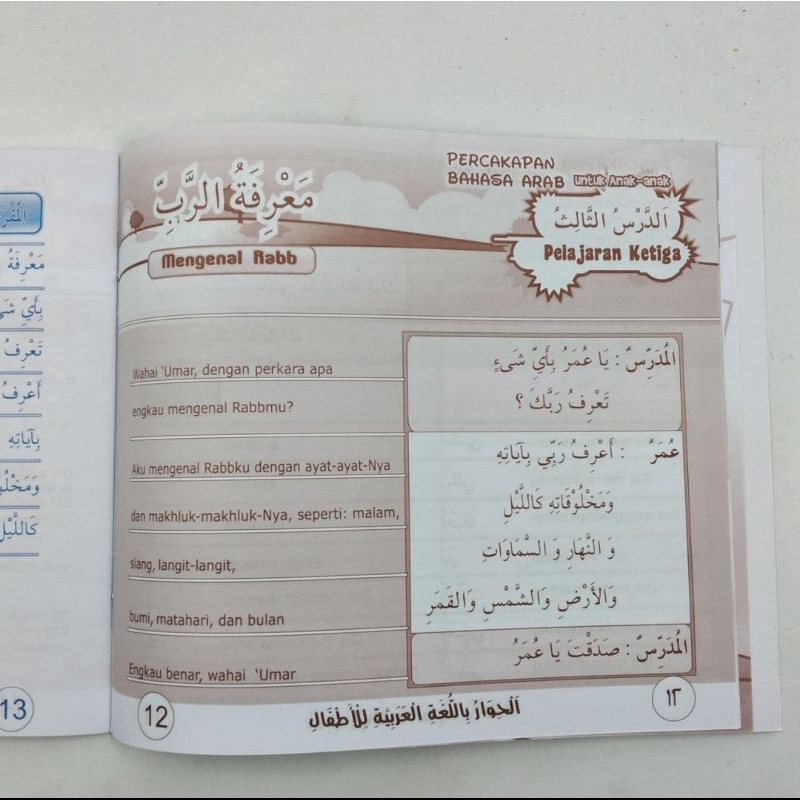 المُفْرَ
مَعْرِفَةُ
بِأَيِّ شَي
تَعْرِفُ
أَعْرِفُ
بِآيَاتِهِ
وَمَخْلُو
كَاللَّيْلِ
13
PERCAKAPAN
BAHASA ARAB untuk Anak-anak
مَعْرِفَةُ الرَّبِّ
Mengenal Rabb
اَلدَّرْسُ الثَّالِثُ
Pelajaran Ketiga
المُدَرِّسُ : يَا عُمَرُ بِأَيِّ شَىْءٍ
تَعْرِفُ رَبَّكَ ؟
عُمَرُ : أَعْرِفُ رَبِّي بِآيَاتِهِ
وَمَخْلُوْقَاتِهِ كَاللَّيْلِ
وَ النَّهَارِ وَ السَّمَاوَاتِ
وَالْأَرْضِ وَالشَّمْسِ وَالقَمَرِ
المُدَرِّسُ : صَدَقْتَ يَا عُمَرُ
Wahai 'Umar, dengan perkara apa
engkau mengenal Rabbmu?
Aku mengenal Rabbku dengan ayat-ayat-Nya
dan makhluk-makhluk-Nya, seperti: malam,
siang, langit-langit,
bumi, matahari, dan bulan
Engkau benar, wahai 'Umar
12
اَلْحِوَارُ بِاللُّغَةِ الْعَرَبِيَّةِ لِلْأَطْفَالِ
١٢